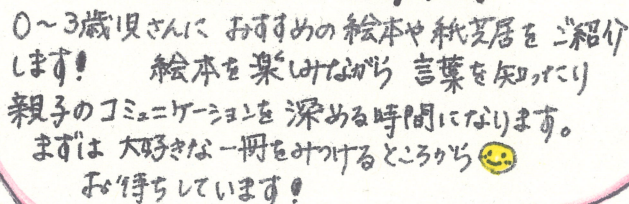 0～3歳児さんに おすすめの絵本や紙芝居を ご紹介
します！ 絵本を楽しみながら 言葉を知ったり
親子のコミュニケーションを深める時間になります。
まずは 大好きな一冊をみつけるところから
お待ちしています！